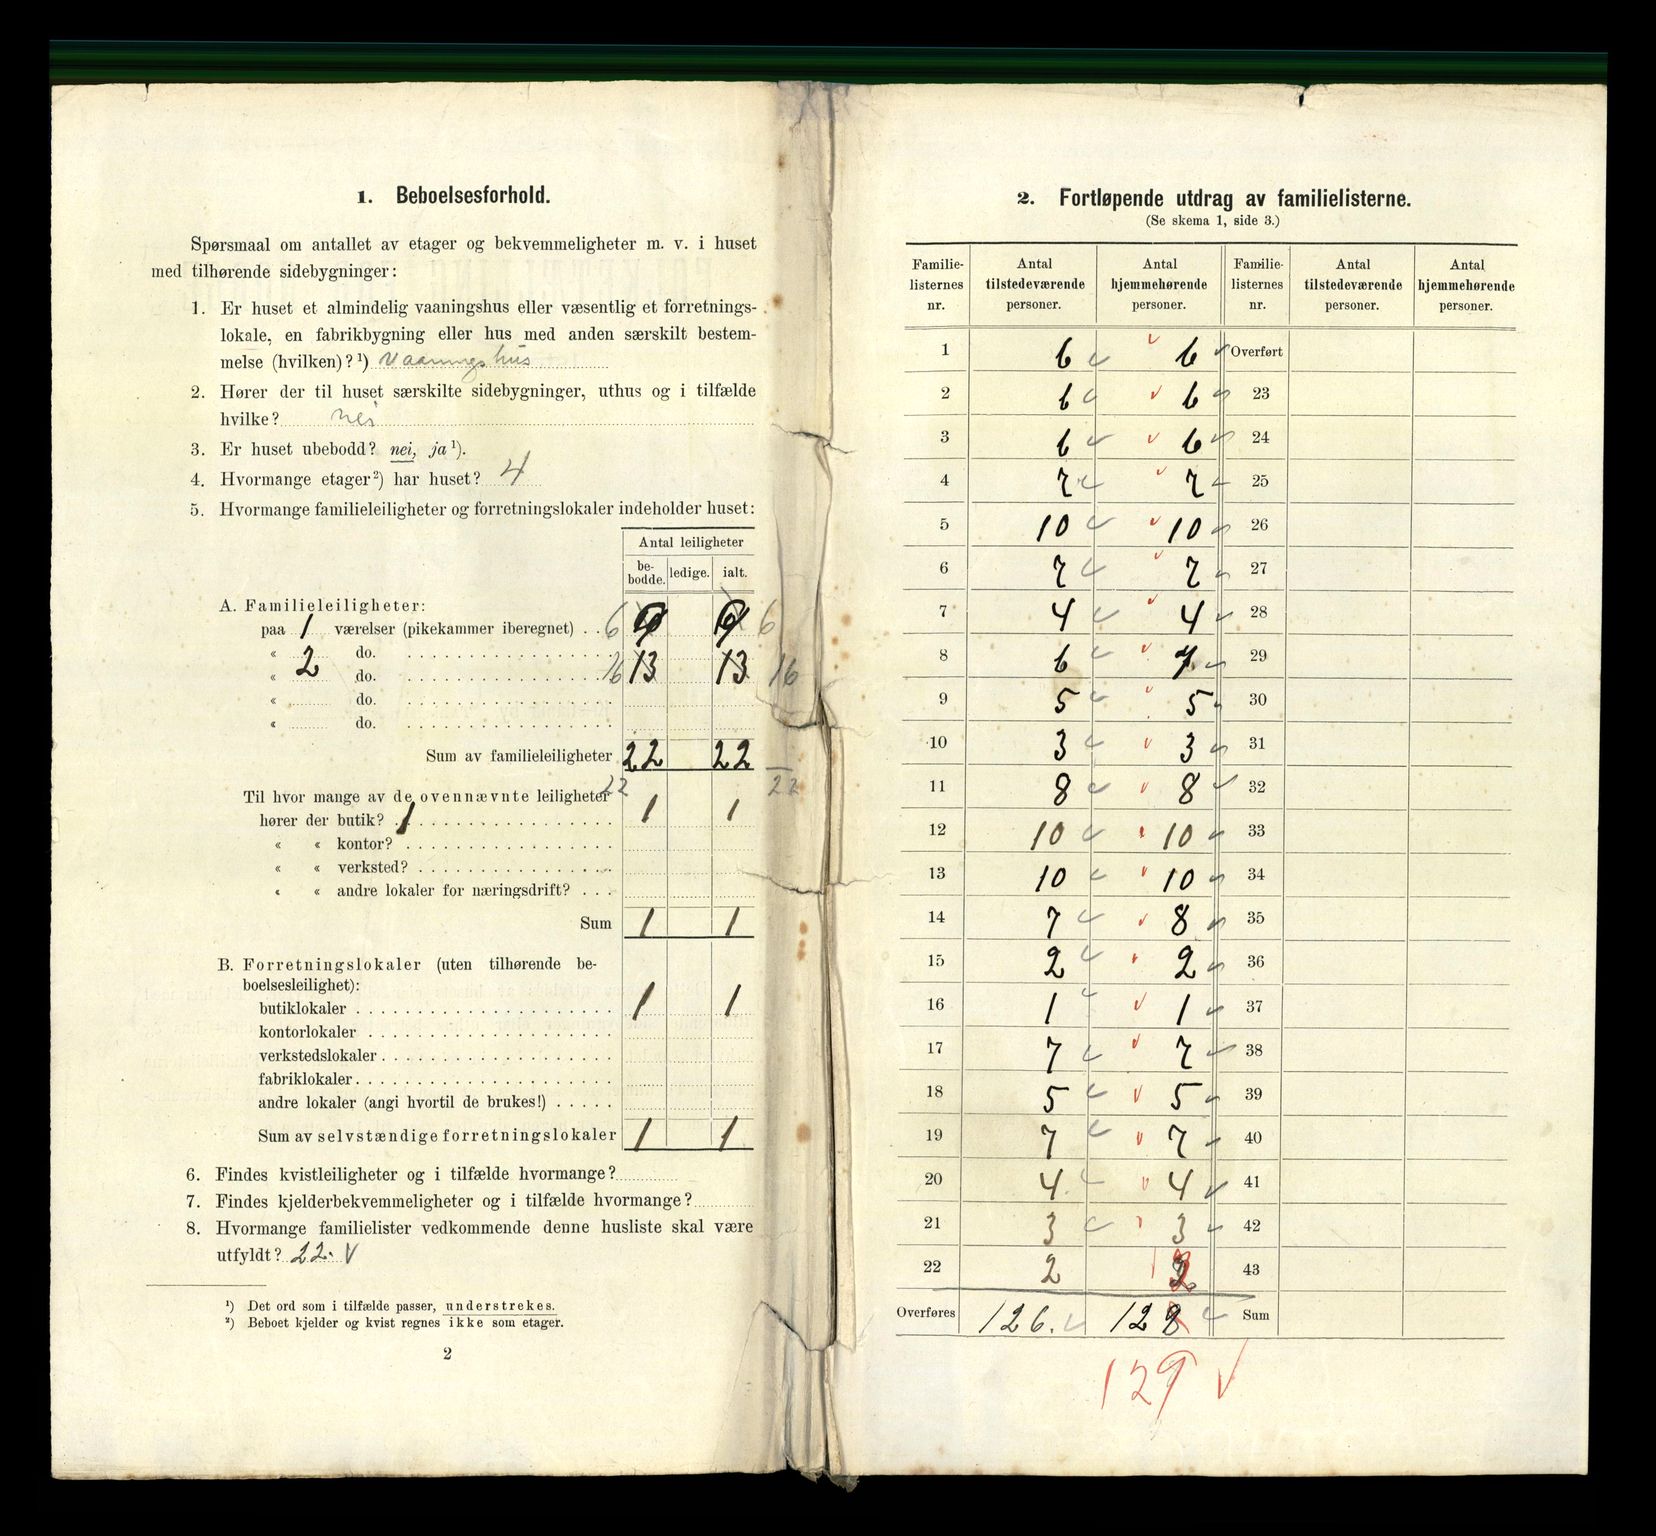 1. Beboelsesforhold.
Spørsmaal om antallet av etager og bekvemmeligheter m. v. i huset
med tilhørende sidebygninger:
1. Er huset et almindelig vaaningshus eller væsentlig et forretnings-
lokale, en fabrikbygning eller hus med anden særskilt bestem-
melse (hvilken)? ¹) Vaaningshus
2. Hører der til huset særskilte sidebygninger, uthus og i tilfælde
hvilke? nei
3. Er huset ubebodd? nei, ja ¹).
4. Hvormange etager ²) har huset? 4
5. Hvormange familieleiligheter og forretningslokaler indeholder huset:
Antal leiligheter
be-bodde. ledige. ialt.
A. Familieleiligheter:
paa 1 værelser (pikekammer iberegnet) . . 6 9 9 6
« do.
« 2 do. 16 13 13 16
« do.
« do.
Sum av familieleiligheter 22 22
22 22
Til hvor mange av de ovennævnte leiligheter
hører der butik? 1 1 1
« « kontor?
« « verksted?
« « andre lokaler for næringsdrift? . . .
Sum 1 1
B. Forretningslokaler (uten tilhørende be-
boelsesleilighet):
butiklokaler 1 1
kontorlokaler
verkstedslokaler
fabriklokaler
andre lokaler (angi hvortil de brukes!)
Sum av selvstændige forretningslokaler 1 1
6. Findes kvistleiligheter og i tilfælde hvormange?
7. Findes kjelderbekvemmeligheter og i tilfælde hvormange?
8. Hvormange familielister vedkommende denne husliste skal være
utfyldt? 22. V
¹) Det ord som i tilfælde passer, understrekes.
²) Beboet kjelder og kvist regnes ikke som etager.
2
2. Fortløpende utdrag av familielisterne.
(Se skema 1, side 3.)
Familie-listernes nr. Antal tilstedeværende personer. Antal hjemmehørende personer. Familie-listernes nr. Antal tilstedeværende personer. Antal hjemmehørende personer.
1 6 6 Overført
2 6 6 23
3 6 6 24
4 7 7 25
5 10 10 26
6 7 7 27
7 4 4 28
8 6 7 29
9 5 5 30
10 3 3 31
11 8 8 32
12 10 10 33
13 10 10 34
14 7 8 35
15 2 2 36
16 1 1 37
17 7 7 38
18 5 5 39
19 7 7 40
20 4 4 41
21 3 3 42
22 2 3 43
Overføres 126. 128 Sum
129 V